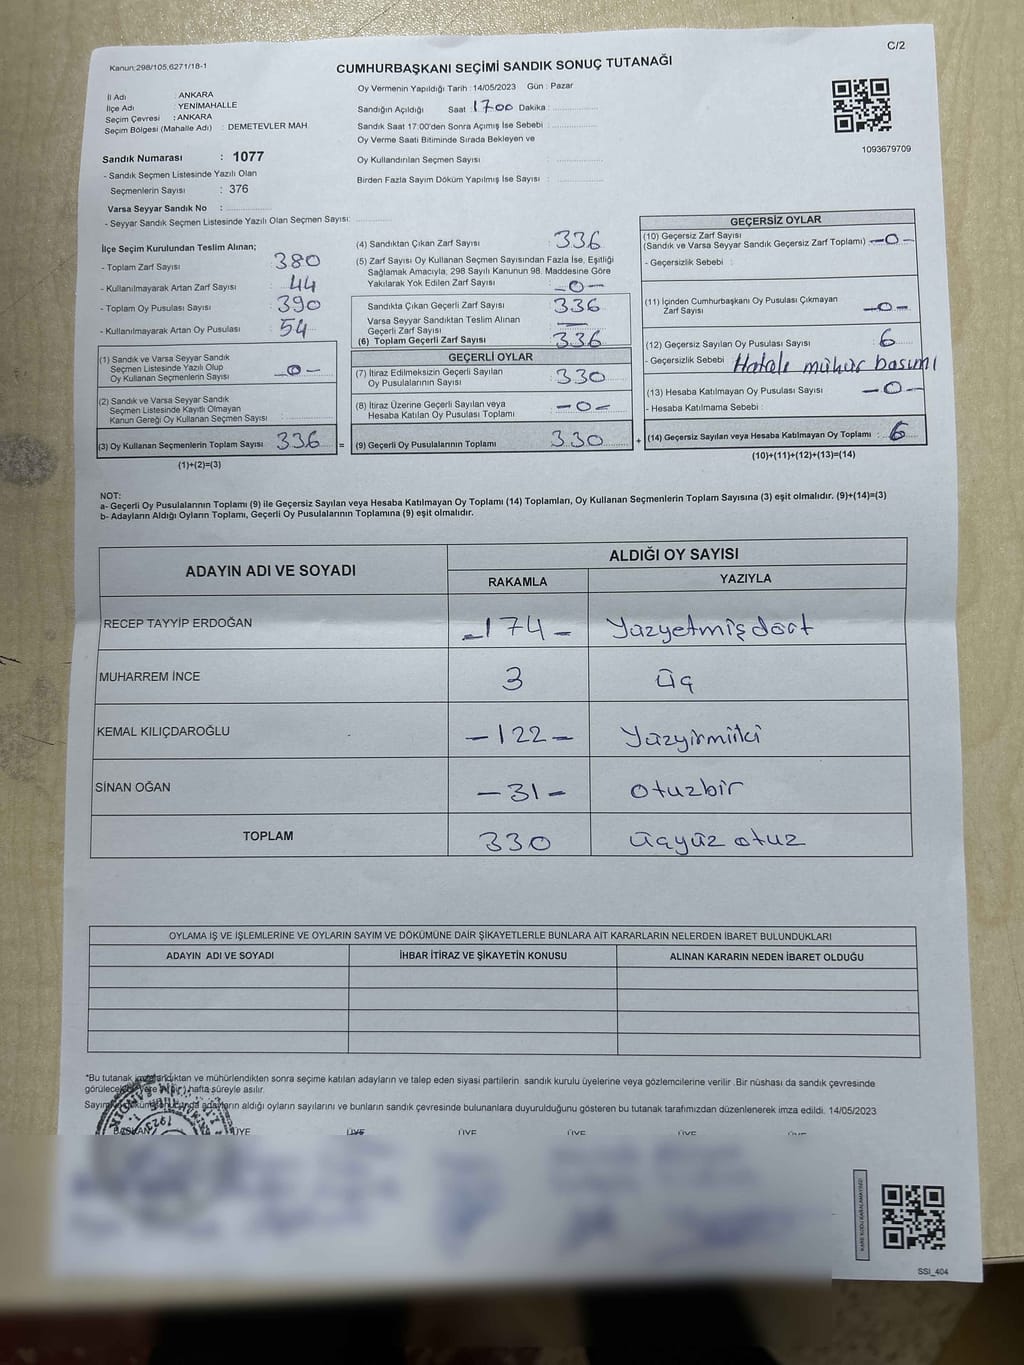 C/2
Kanun:298/105,6271/18-1
CUMHURBAŞKANI SEÇİMİ SANDIK SONUÇ TUTANAĞI
İl Adı : ANKARA
İlçe Adı : YENİMAHALLE
Seçim Çevresi : ANKARA
Seçim Bölgesi (Mahalle Adı) : DEMETEVLER MAH.
Oy Vermenin Yapıldığı Tarih : 14/05/2023 Gün : Pazar
Sandığın Açıldığı Saat : 1700 Dakika :
Sandık Saat 17:00'den Sonra Açımış İse Sebebi :
Oy Verme Saati Bitiminde Sırada Bekleyen ve
Oy Kullandırılan Seçmen Sayısı :
Birden Fazla Sayım Döküm Yapılmış İse Sayısı :
1093679709
Sandık Numarası : 1077
- Sandık Seçmen Listesinde Yazılı Olan
Seçmenlerin Sayısı : 376
Varsa Seyyar Sandık No :
- Seyyar Sandık Seçmen Listesinde Yazılı Olan Seçmen Sayısı:
İlçe Seçim Kurulundan Teslim Alınan;
- Toplam Zarf Sayısı 380
- Kullanılmayarak Artan Zarf Sayısı 44
- Toplam Oy Pusulası Sayısı 390
- Kullanılmayarak Artan Oy Pusulası 54
(1) Sandık ve Varsa Seyyar Sandık
Seçmen Listesinde Yazılı Olup
Oy Kullanan Seçmenlerin Sayısı -0-
(2) Sandık ve Varsa Seyyar Sandık
Seçmen Listesinde Kayıtlı Olmayan
Kanun Gereği Oy Kullanan Seçmen Sayısı :
(3) Oy Kullanan Seçmenlerin Toplam Sayısı 336 =
(1)+(2)=(3)
(4) Sandıktan Çıkan Zarf Sayısı : 336
(5) Zarf Sayısı Oy Kullanan Seçmen Sayısından Fazla İse, Eşitliği
Sağlamak Amacıyla, 298 Sayılı Kanunun 98. Maddesine Göre
Yakılarak Yok Edilen Zarf Sayısı -0-
Sandıkta Çıkan Geçerli Zarf Sayısı 336
Varsa Seyyar Sandıktan Teslim Alınan
Geçerli Zarf Sayısı —
(6) Toplam Geçerli Zarf Sayısı 336
GEÇERLİ OYLAR
(7) İtiraz Edilmeksizin Geçerli Sayılan
Oy Pusulalarının Sayısı 330
(8) İtiraz Üzerine Geçerli Sayılan veya
Hesaba Katılan Oy Pusulası Toplamı -0-
(9) Geçerli Oy Pusulalarının Toplamı 330 +
GEÇERSİZ OYLAR
(10) Geçersiz Zarf Sayısı
(Sandık ve Varsa Seyyar Sandık Geçersiz Zarf Toplamı) -0-
- Geçersizlik Sebebi :
(11) İçinden Cumhurbaşkanı Oy Pusulası Çıkmayan
Zarf Sayısı -0-
(12) Geçersiz Sayılan Oy Pusulası Sayısı 6
- Geçersizlik Sebebi Hatalı mühür basımı
(13) Hesaba Katılmayan Oy Pusulası Sayısı -0-
- Hesaba Katılmama Sebebi :
(14) Geçersiz Sayılan veya Hesaba Katılmayan Oy Toplamı : 6
(10)+(11)+(12)+(13)=(14)
NOT:
a- Geçerli Oy Pusulalarının Toplamı (9) ile Geçersiz Sayılan veya Hesaba Katılmayan Oy Toplamı (14) Toplamları, Oy Kullanan Seçmenlerin Toplam Sayısına (3) eşit olmalıdır. (9)+(14)=(3)
b- Adayların Aldığı Oyların Toplamı, Geçerli Oy Pusulalarının Toplamına (9) eşit olmalıdır.
ADAYIN ADI VE SOYADI
ALDIĞI OY SAYISI
RAKAMLA YAZIYLA
RECEP TAYYİP ERDOĞAN -174- Yüzyetmişdört
MUHARREM İNCE 3 Üç
KEMAL KILIÇDAROĞLU -122- Yüzyirmiiki
SİNAN OĞAN -31- Otuzbir
TOPLAM 330 Üçyüz otuz
OYLAMA İŞ VE İŞLEMLERİNE VE OYLARIN SAYIM VE DÖKÜMÜNE DAİR ŞİKAYETLERLE BUNLARA AİT KARARLARIN NELERDEN İBARET BULUNDUKLARI
ADAYIN ADI VE SOYADI İHBAR İTİRAZ VE ŞİKAYETİN KONUSU ALINAN KARARIN NEDEN İBARET OLDUĞU
*Bu tutanak imzalandıktan ve mühürlendikten sonra seçime katılan adayların ve talep eden siyasi partilerin sandık kurulu üyelerine veya gözlemcilerine verilir. Bir nüshası da sandık çevresinde
görülecek bir yere 1 (bir) hafta süreyle asılır.
adayların aldığı oyların sayılarını ve bunların sandık çevresinde bulunanlara duyurulduğunu gösteren bu tutanak tarafımızdan düzenlenerek imza edildi. 14/05/2023
BAŞKAN ÜYE ÜYE ÜYE ÜYE ÜYE ÜYE
SSI_404